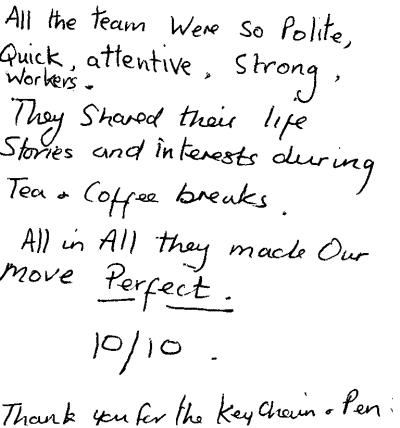 All the team were so Polite,
Quick, attentive, strong,
workers.
They Shared their life
Stories and interests during
Tea & Coffee breaks.
All in All they made Our
move Perfect.
10/10.
Thank you for the Key Chain & Pen